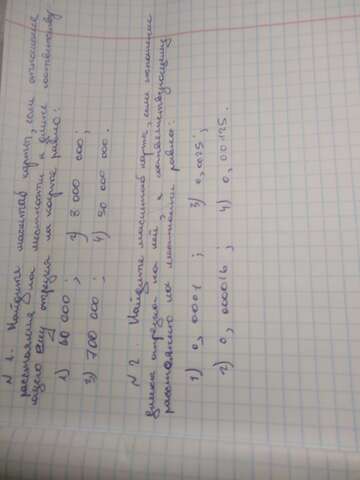 N 1. Найдите масштаб карты, если отношение
расстояния на местности к длине соответству
ющего ему отрезка на карте равно:
1) 60 000 ; 2) 8 000 000 ;
3) 700 000 ; 4) 50 000 000.
N 2. Найдите масштаб карты, если отношение
длины отрезка на ней, к соответствующему
расстоянию на местности равно:
1) 0,0001 ; 3) 0,0025 ;
2) 0,000016 ; 4) 0,00125.